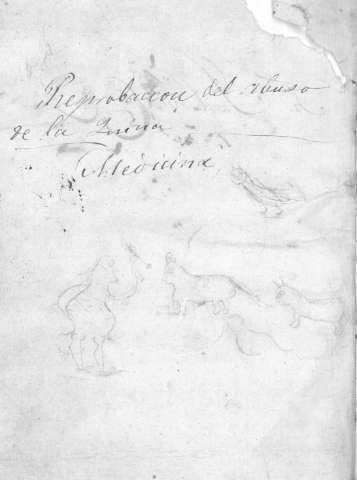 Reprobacion del abuso
de la Quina
Medicina